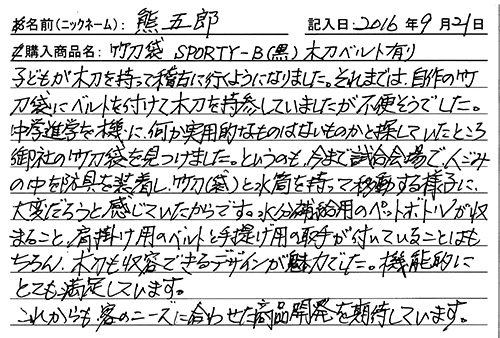 お名前(ニックネーム): 熊五郎 記入日: 2016年9月21日
ご購入商品名: 竹刀袋 SPORTY-B(黒)木刀ベルト有り
子どもが木刀を持って稽古に行くようになりました。それまでは、自作の竹
刀袋にベルトを付けて木刀を持参していましたが不便そうでした。
中学進学を機に、何か実用的なものはないものかと探していたところ
御社の竹刀袋を見つけました。というのも、今まで試合会場で、人ごみ
の中を防具を装着し、竹刀(袋)と水筒を持って移動する様子に、
大変だろうと感じていたからです。水分補給用のペットボトルが収
まること、肩掛け用のベルトと手提げ用の取手が付いていることはも
ちろん、木刀も収容できるデザインが魅力でした。機能的に
とても満足しています。
これからも、客のニーズに合わせた商品開発を期待しています。